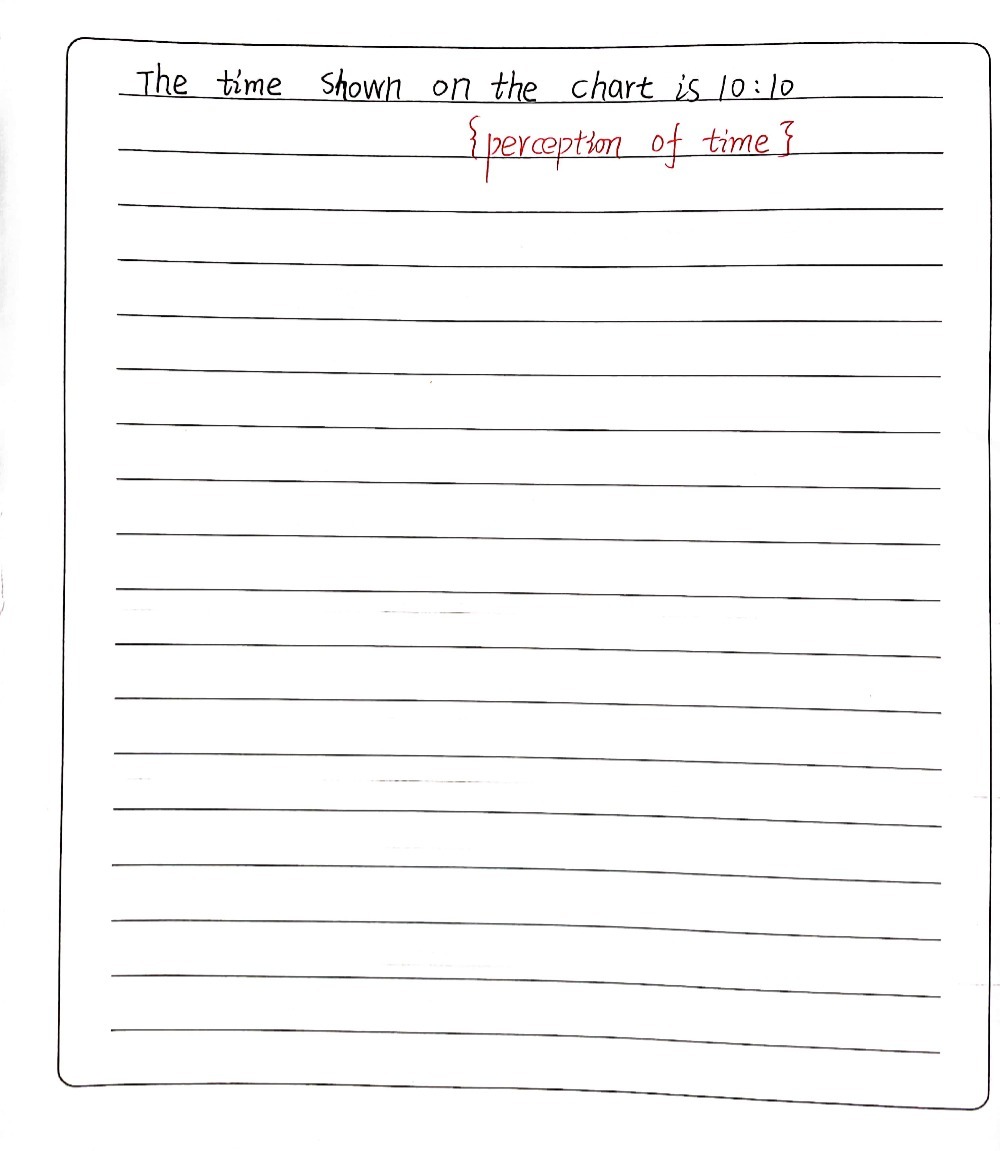 The time shown on the chart is 10:10
{perception of time}